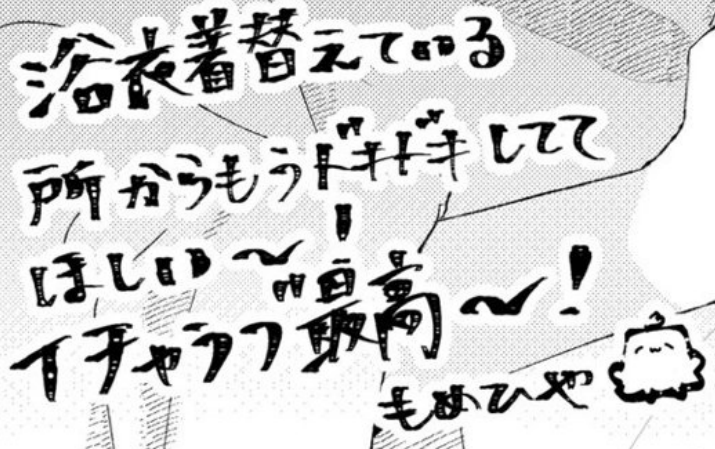 浴衣着替えている
所からもうドキドキしてて
ほしい〜!
イチャラブ最高〜!
もめひや